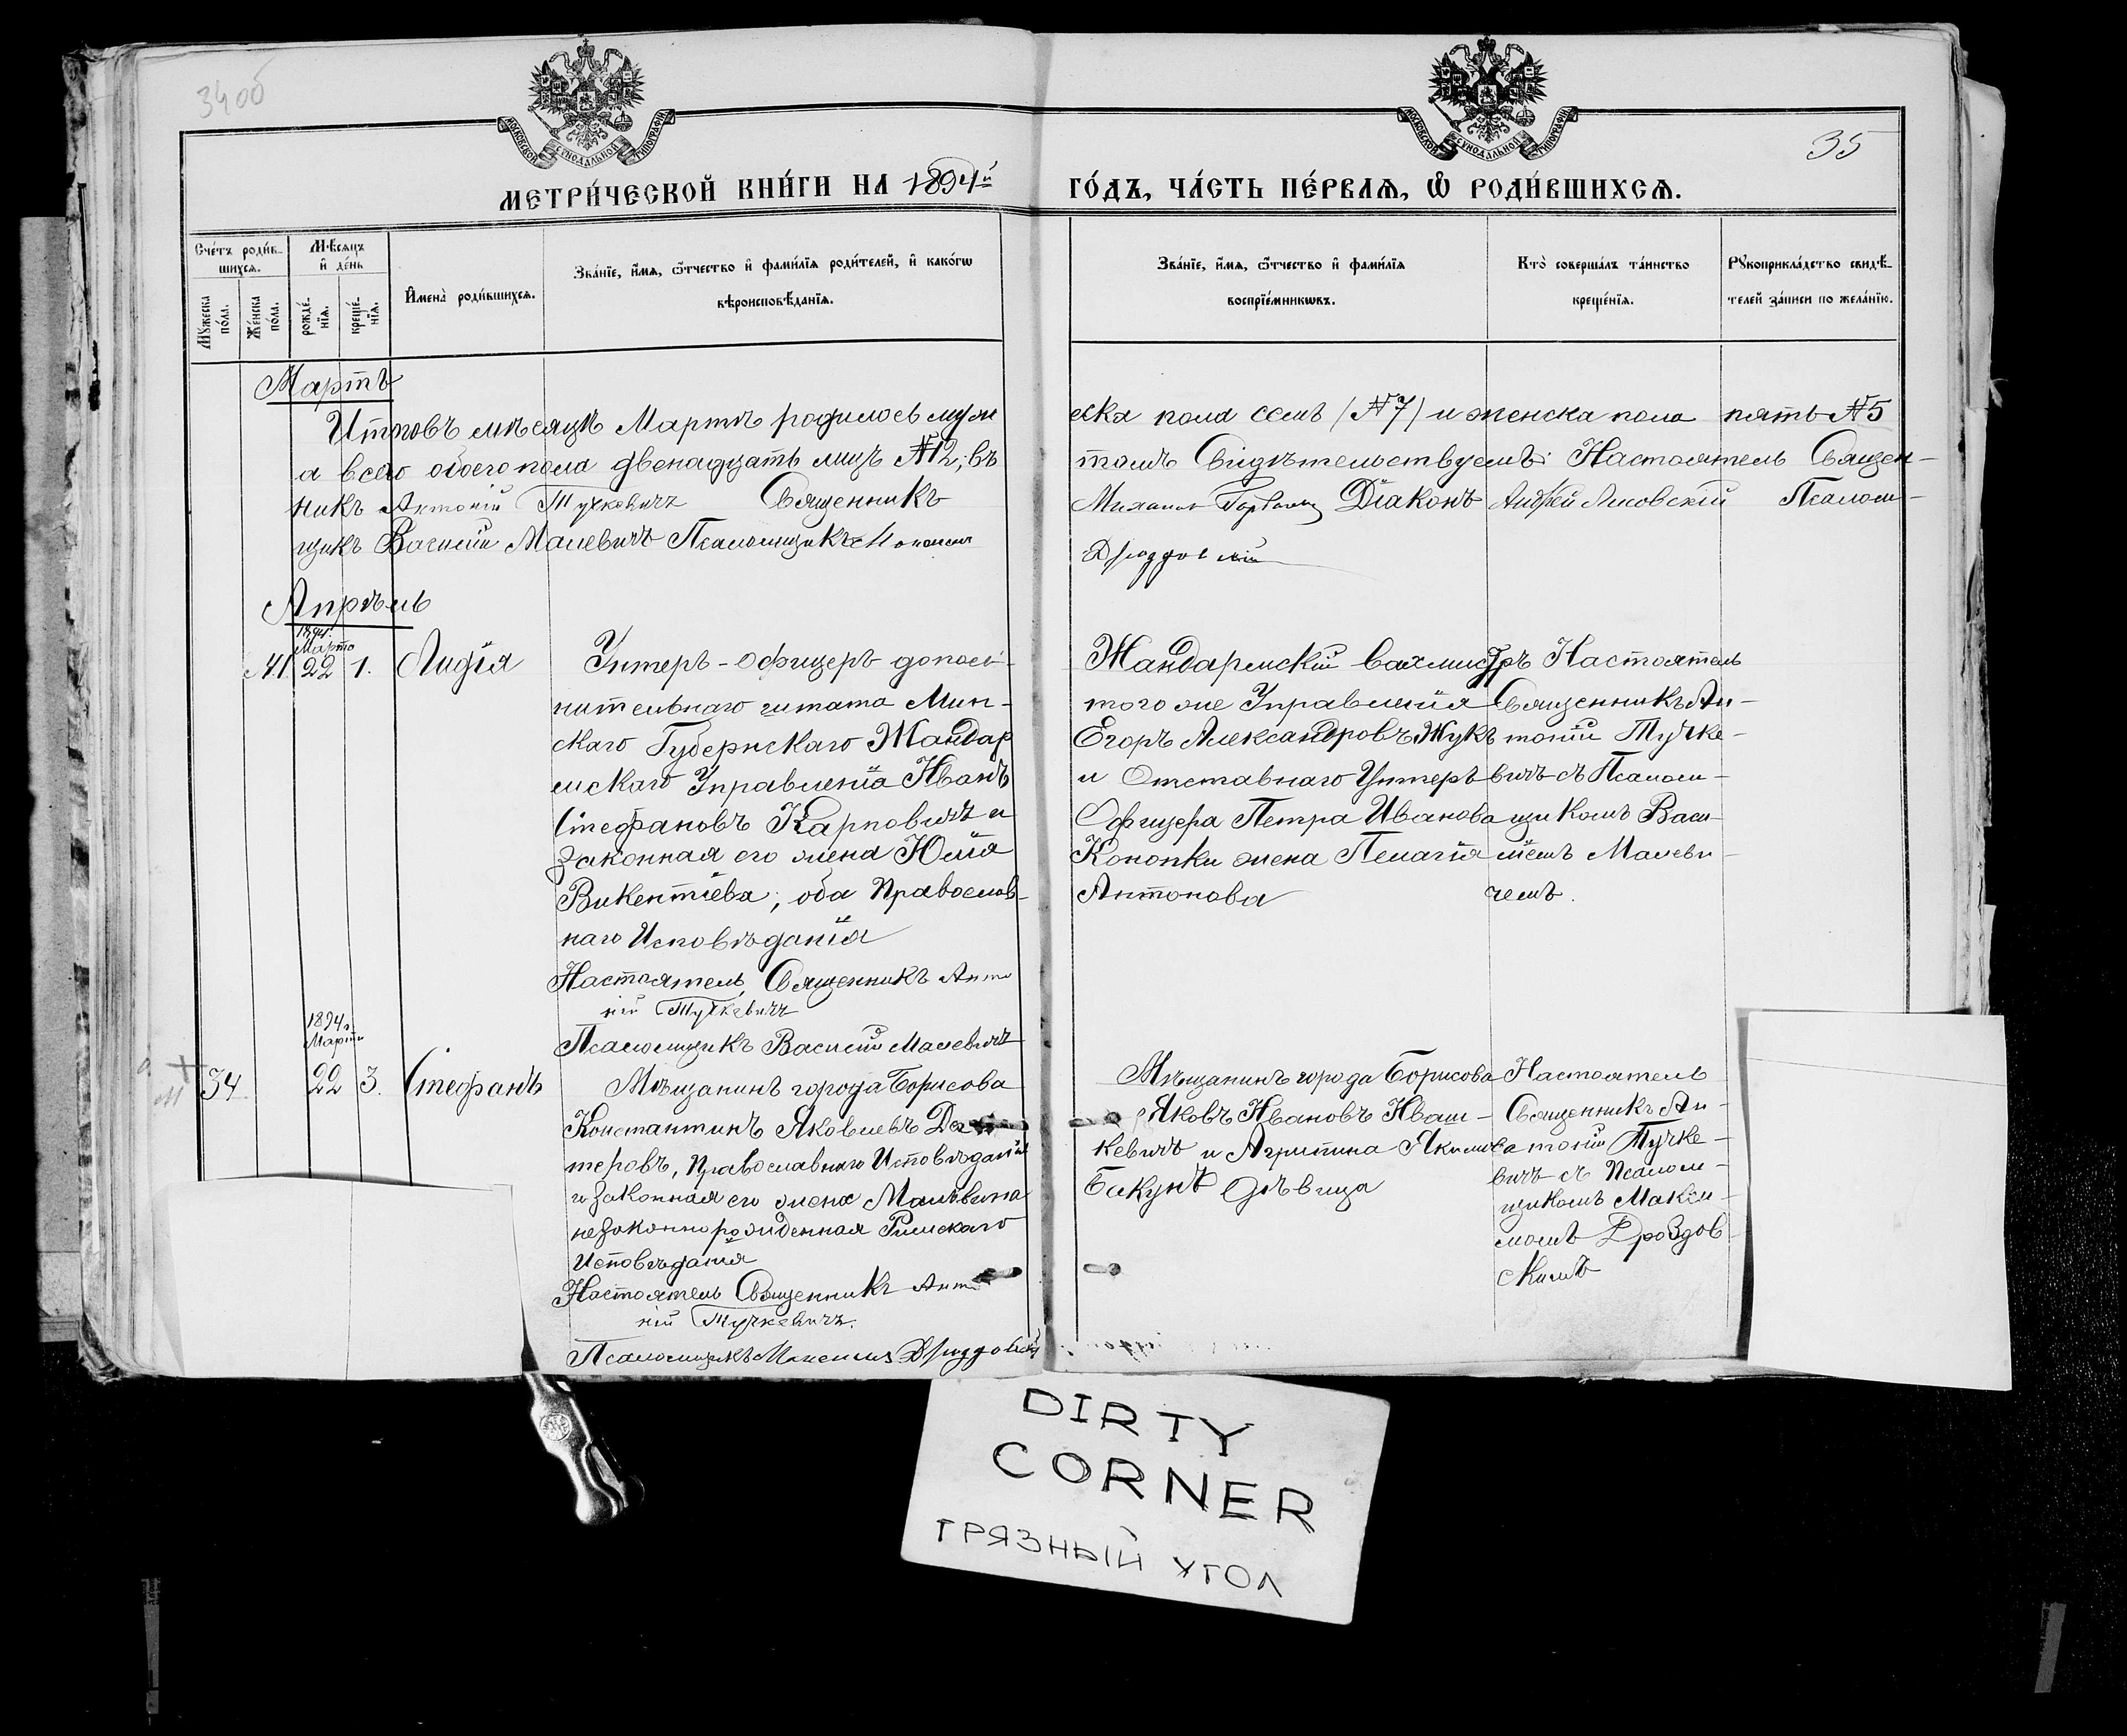 34об
35
МОСКОВСКОЙ СѴНОДАЛЬНОЙ ТИПОГРАФІИ
МОСКОВСКОЙ СѴНОДАЛЬНОЙ ТИПОГРАФІИ
МЕТРИ́ЧЕСКОЙ КНИ́ГИ НА 1894й
ГО́ДЪ, ЧА́СТЬ ПЕ́РВАѦ, Ѡ҆ РОДИ́ВШИХСѦ.
Сче́тъ роди́в-
шихсѧ.
Мꙋ́жеска по́ла.
Же́нска по́ла.
Мѣ́сѧцъ
и҆ де́нь
рожде́-
нїѧ.
креще́-
нїѧ.
И҆мена̀ роди́вшихсѧ.
Зва́нїе, и҆́мѧ, ѻ҆́тчество и҆ фами́лїѧ роди́телей, и҆ како́гѡ
вѣроисповѣ́данїѧ.
Зва́нїе, и҆́мѧ, ѻ҆́тчество и҆ фами́лїѧ
воспрїе́мникѡвъ.
Кто̀ соверша́лъ та́инство
креще́нїѧ.
Рꙋкоприкла́дство свидѣ́-
телей за́писи по жела́нїю.
Мартъ
Итого въ мѣсяцѣ Мартѣ родилось муж
еска пола семь (№7) и женска пола пять №5
а всего обоего пола двенадцать лицъ №12; въ
томъ Свидѣтельствуемъ: Настоятель Священ-
никъ Антоній Тучкевичъ Священникъ
Михаилъ Діаконъ Андрей Псалом-
щикъ Василій Малевичъ Псаломщикъ
Дроздовскій
Апрѣль
1894г.
Марта
№1. 22 1. Лидія
Унтеръ-офицеръ допол-
нительнаго штата Мин-
скаго Губернскаго Жандар
мскаго Управленія Иванъ
Стефановъ Карповичъ и
законная его жена Юлія
Викентіева; оба Православ-
наго Исповѣданія
Настоятель, Священникъ Анто
ній Тучкевичъ
Псаломщикъ Василій Малевичъ
Жандармскій вахмистръ
того же Управленія
Егоръ Александровъ Жукъ
и Отставнаго Унтеръ
Офицера Петра Иванова
Конопки жена Пелагія
Антонова
Настоятель
Священникъ Ан-
тоній Тучке-
вичъ съ Псалом-
щикомъ Васи-
ліемъ Малеви-
чемъ.
1894г.
Марта
34 22 3. Стефанъ
Мѣщанинъ города Борисова
Константинъ Яковлевъ
теровъ, Православнаго Исповѣданія
и законная его жена Мальвина
незаконнорожденная Римскаго
Исповѣданія
Настоятель Священникъ Анто
ній Тучкевичъ.
Псаломщикъ Максимъ Дроздовскій
Мѣщанинъ города Борисова
Яковъ Ивановъ Иваш-
кевичъ и Агрипина Якимова
Бакунъ дѣвица
Настоятель
Священникъ Ан-
тоній Тучке-
вичъ съ Псалом-
щикомъ Макси-
момъ Дроздов-
скимъ
DIRTY
CORNER
ГРЯЗНЫЙ УГОЛ